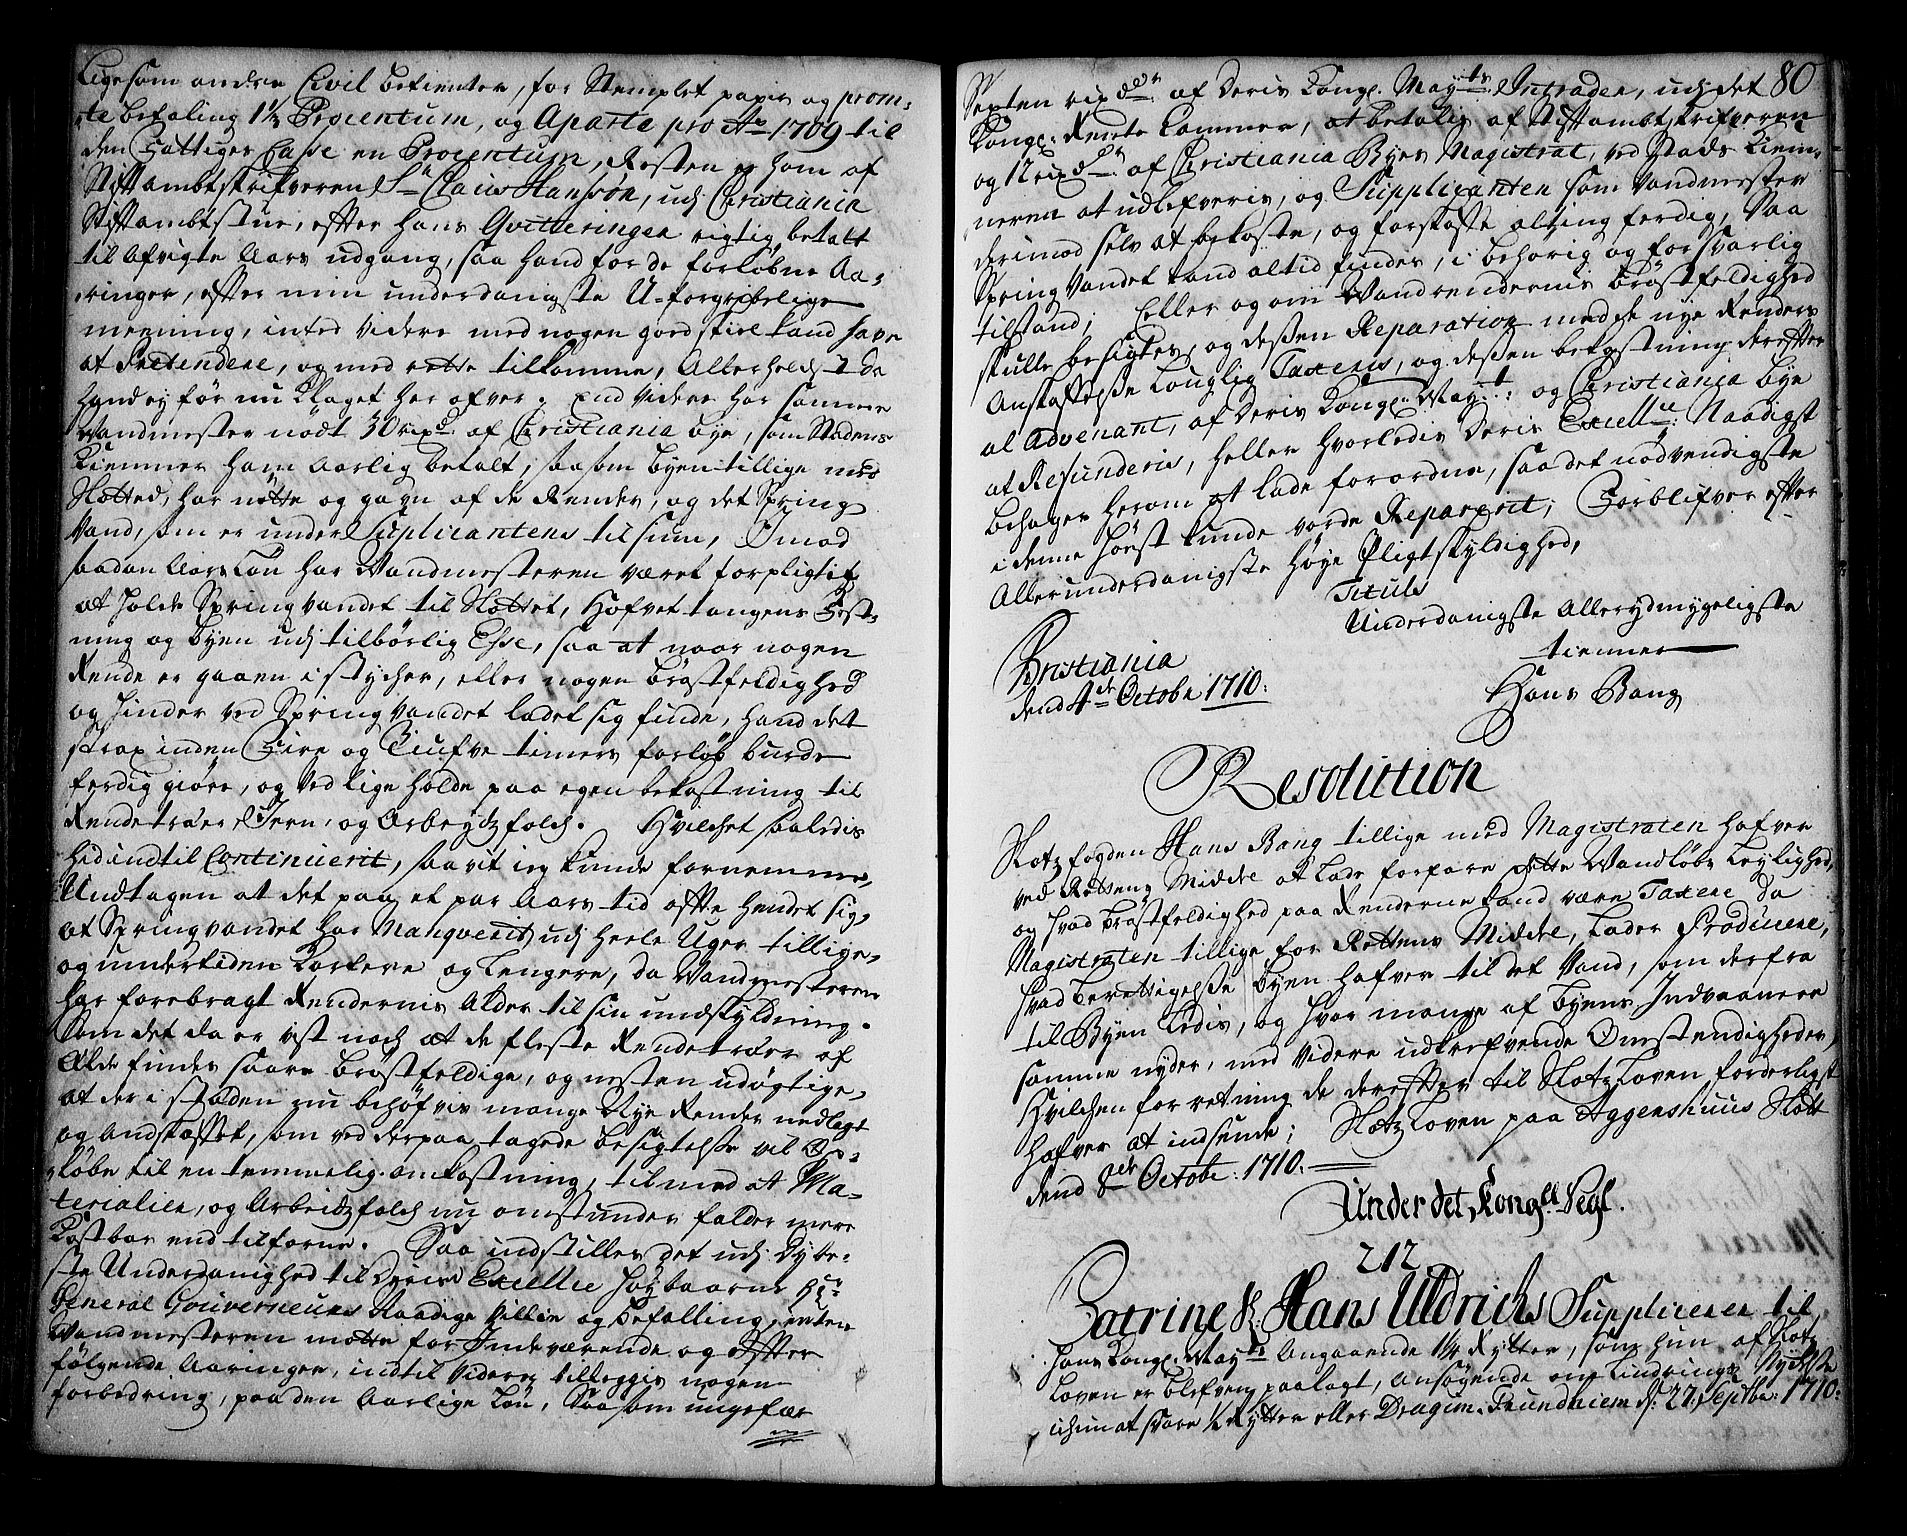 Ligesom andre Civil betienter, for Stemplet papir og prom-
te befaling 1½ Procentum, og Aparte pro Ao 1709 til
den Fattiges Casse en Procentum, Resten er ham af
Stiftambtskrifveren Sr Claus Hansøn, udj Christiania
Stiftambtstue, efter hans Qvitteringer rigtig betalt
til afvigte Aars udgang, saa hand for de forløbne Aa-
ringer, efter min underdanigste U-forgribelige
meening, inted videre med nogen goed skiel kand have
at Prætendere, og med rette tilkomme, Allerhelst da
hand ey før nu klaget her ofver. End videre har samme
Vandmester nødt 30 rixdr af Christiania bye, som Stadens
Kiemner ham Aarlig betalt, saasom byen tillige med
Slotted, har nøtte og gavn af de Render, og det Spring
Vand, som er under Suplicantens tilsiun, Imod
saadan Aars Løn har Vandmesteren været forpligtet
at holde Springvandet til Slottet, Hofvet tangens Fest-
ning og byen udj tilbørlig Esse, saa at naar nogen
Rende er gaaen i stycher, eller nogen brøstfeldighed
og hinder ved Springvandet ladet sig finde, hand det
strax inden Fire og Tiufve timers forløb burde
ferdig giøre, og ved lige holde paa egen bekostning til
Rendetræer, Jern, og Arbeydzfolch. Hvilchet saaledis
hid indtil Continuerit, saa vit ieg kunde fornemme,
Undtagen at det paa et par Aars tid ofte hendet sig,
at Springvandet har Manqverit udj heele Uger tillige,
og undertiden kortere og lengere, da Vandmesteren
har forebragt Rendernis Alder til sin undskyldning.
Som det da er vist noch at de fleste Rendetræer af
Ælde findes saare brøstfeldige, og nesten udøgtige,
at der i stæden nu behøfvis mange Nye Render nedlagt
og andskaffet, som ved derpaa tagede besigtelse vil op-
løbe til en temmelig omkostning, til med at Ma-
terialier, og Arbeidzfolch nu omstunder falder mere
kostbar end tilforne. Saa indstilles det udj dybe-
ste Underdanighed til Deris Excellce Høybaarne Hr
General Gouverneurs Naadige Villie og befalling, enten
Vandmesteren motte for Indeværende og efter
følgende Aaringer, indtil Videre tilleggis nogen
forbedring, paa den Aarlige Løn, Saasom ungefær
80
Septen rixdlr af Deris Kongl. Mayts Intrader, udj det
Kongl. Rente Kammer, at betalis af Stiftambtskrifveren
og 12 rixdr af Christiania Byes Magistrat, ved Stads Kiem-
neren at udlefveris, og Supplicanten som Vandmester
derimod selv at bekoste, og forskaffe alting ferdig, Saa
Spring Vandet kand altid findes, i behørig og forsvarlig
tilstand; Eller og om Vandrendernis brøstfeldighed
skulle besigtes, og deßen Reparation med de nye Renders
Anskaffelse louglig Taxeris, og deßen bekostning derefter
al Advenant, af Deris Kongl. Mayt: og Christiania bye
at Refunderis, heller hvorledis Deris Excellce: Naadigst
behager herom at lade forordne, saa det nødvendigste
i denne høst kunde vorde Reparerit; Forblifver efter
Allerunderdanigste høye Pligtskyldighed,
Tituls
Underdanigste Allerydmygeligste
tienner
Christiania
dend 4de Octobr 1710.
Hans Bang
Resolution
Slotzfogden Hans Bang tillige med Magistraten hafver
ved Rettens Middel at lade forfare dette Vandløbs beylighed,
og hvad brøstfeldighed paa Renderne kand være Taxere da
Magistraten tillige for Rettens Middel, lader Producere,
hvad berettigelse byen hafver til det Vand, som derfra
til Byen ledis, og hvor mange af byens Indvaanere
samme nyder, med videre udkrefvende Omstendigheder,
Hvilchen forretning de derefter til Slotzloven forderligst
hafver at indsende; Slotzloven paa Aggershuus Slott
dend 8de Octobr: 1710.
Under det Kongll Segl.
212
Catrine Sl: Hans Uldrichs Supplicerer til
hans Kongl. Mayts Angaaende 1¼ Rytter, som hun af Slotz
Loven er blefven paalagt, ansøgende om lindring
at svare ½ Rytter eller Dragun. Trundhiem d. 27 Septbr: 1710.